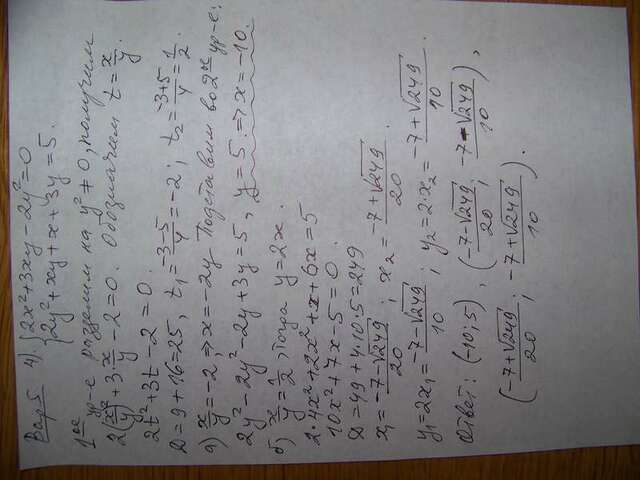 Вар 5 4). {2x²+3xy-2y²=0
{2y²+xy+x+3y=5.
1ое ур-е разделим на y²≠0, получим
2(x/y)²+3·x/y-2=0. Обозначим t=x/y.
2t²+3t-2=0.
D=9+16=25, t₁=(-3-5)/4=-2; t₂=(-3+5)/4=1/2.
а) x/y=-2, ⇒ x=-2y Подставим во 2ое ур-е:
2y²-2y²-2y+3y=5, y=5 ⇒ x=-10.
б) x/y=1/2, тогда y=2x.
2·4x²+2x²+x+6x=5
10x²+7x-5=0.
D=49+4·10·5=249
x₁=(-7-√249)/20; x₂=(-7+√249)/20
y₁=2x₁=(-7-√249)/10; y₂=2·x₂=(-7+√249)/10.
Ответ: (-10;5), ((-7-√249)/20; (-7-√249)/10),
((-7+√249)/20; (-7+√249)/10).